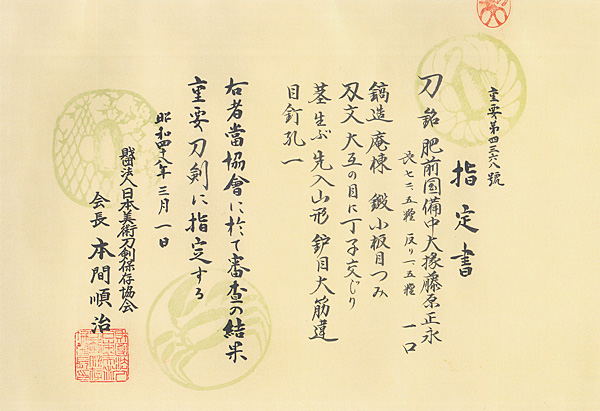 重要第四三六八號
指定書
刀 銘 肥前国備中大掾藤原正永 一口
長七三、五糎 反り一、五糎
鎬造 庵棟 鍛小板目つみ
刃文 大互の目に丁子交じり
茎生ぶ 先入山形 鑢目大筋違
目釘孔一
右者當協會に於て審査の結果
重要刀剣に指定する
昭和四十八年三月一日
財団法人日本美術刀剣保存協会
会長 本間順治